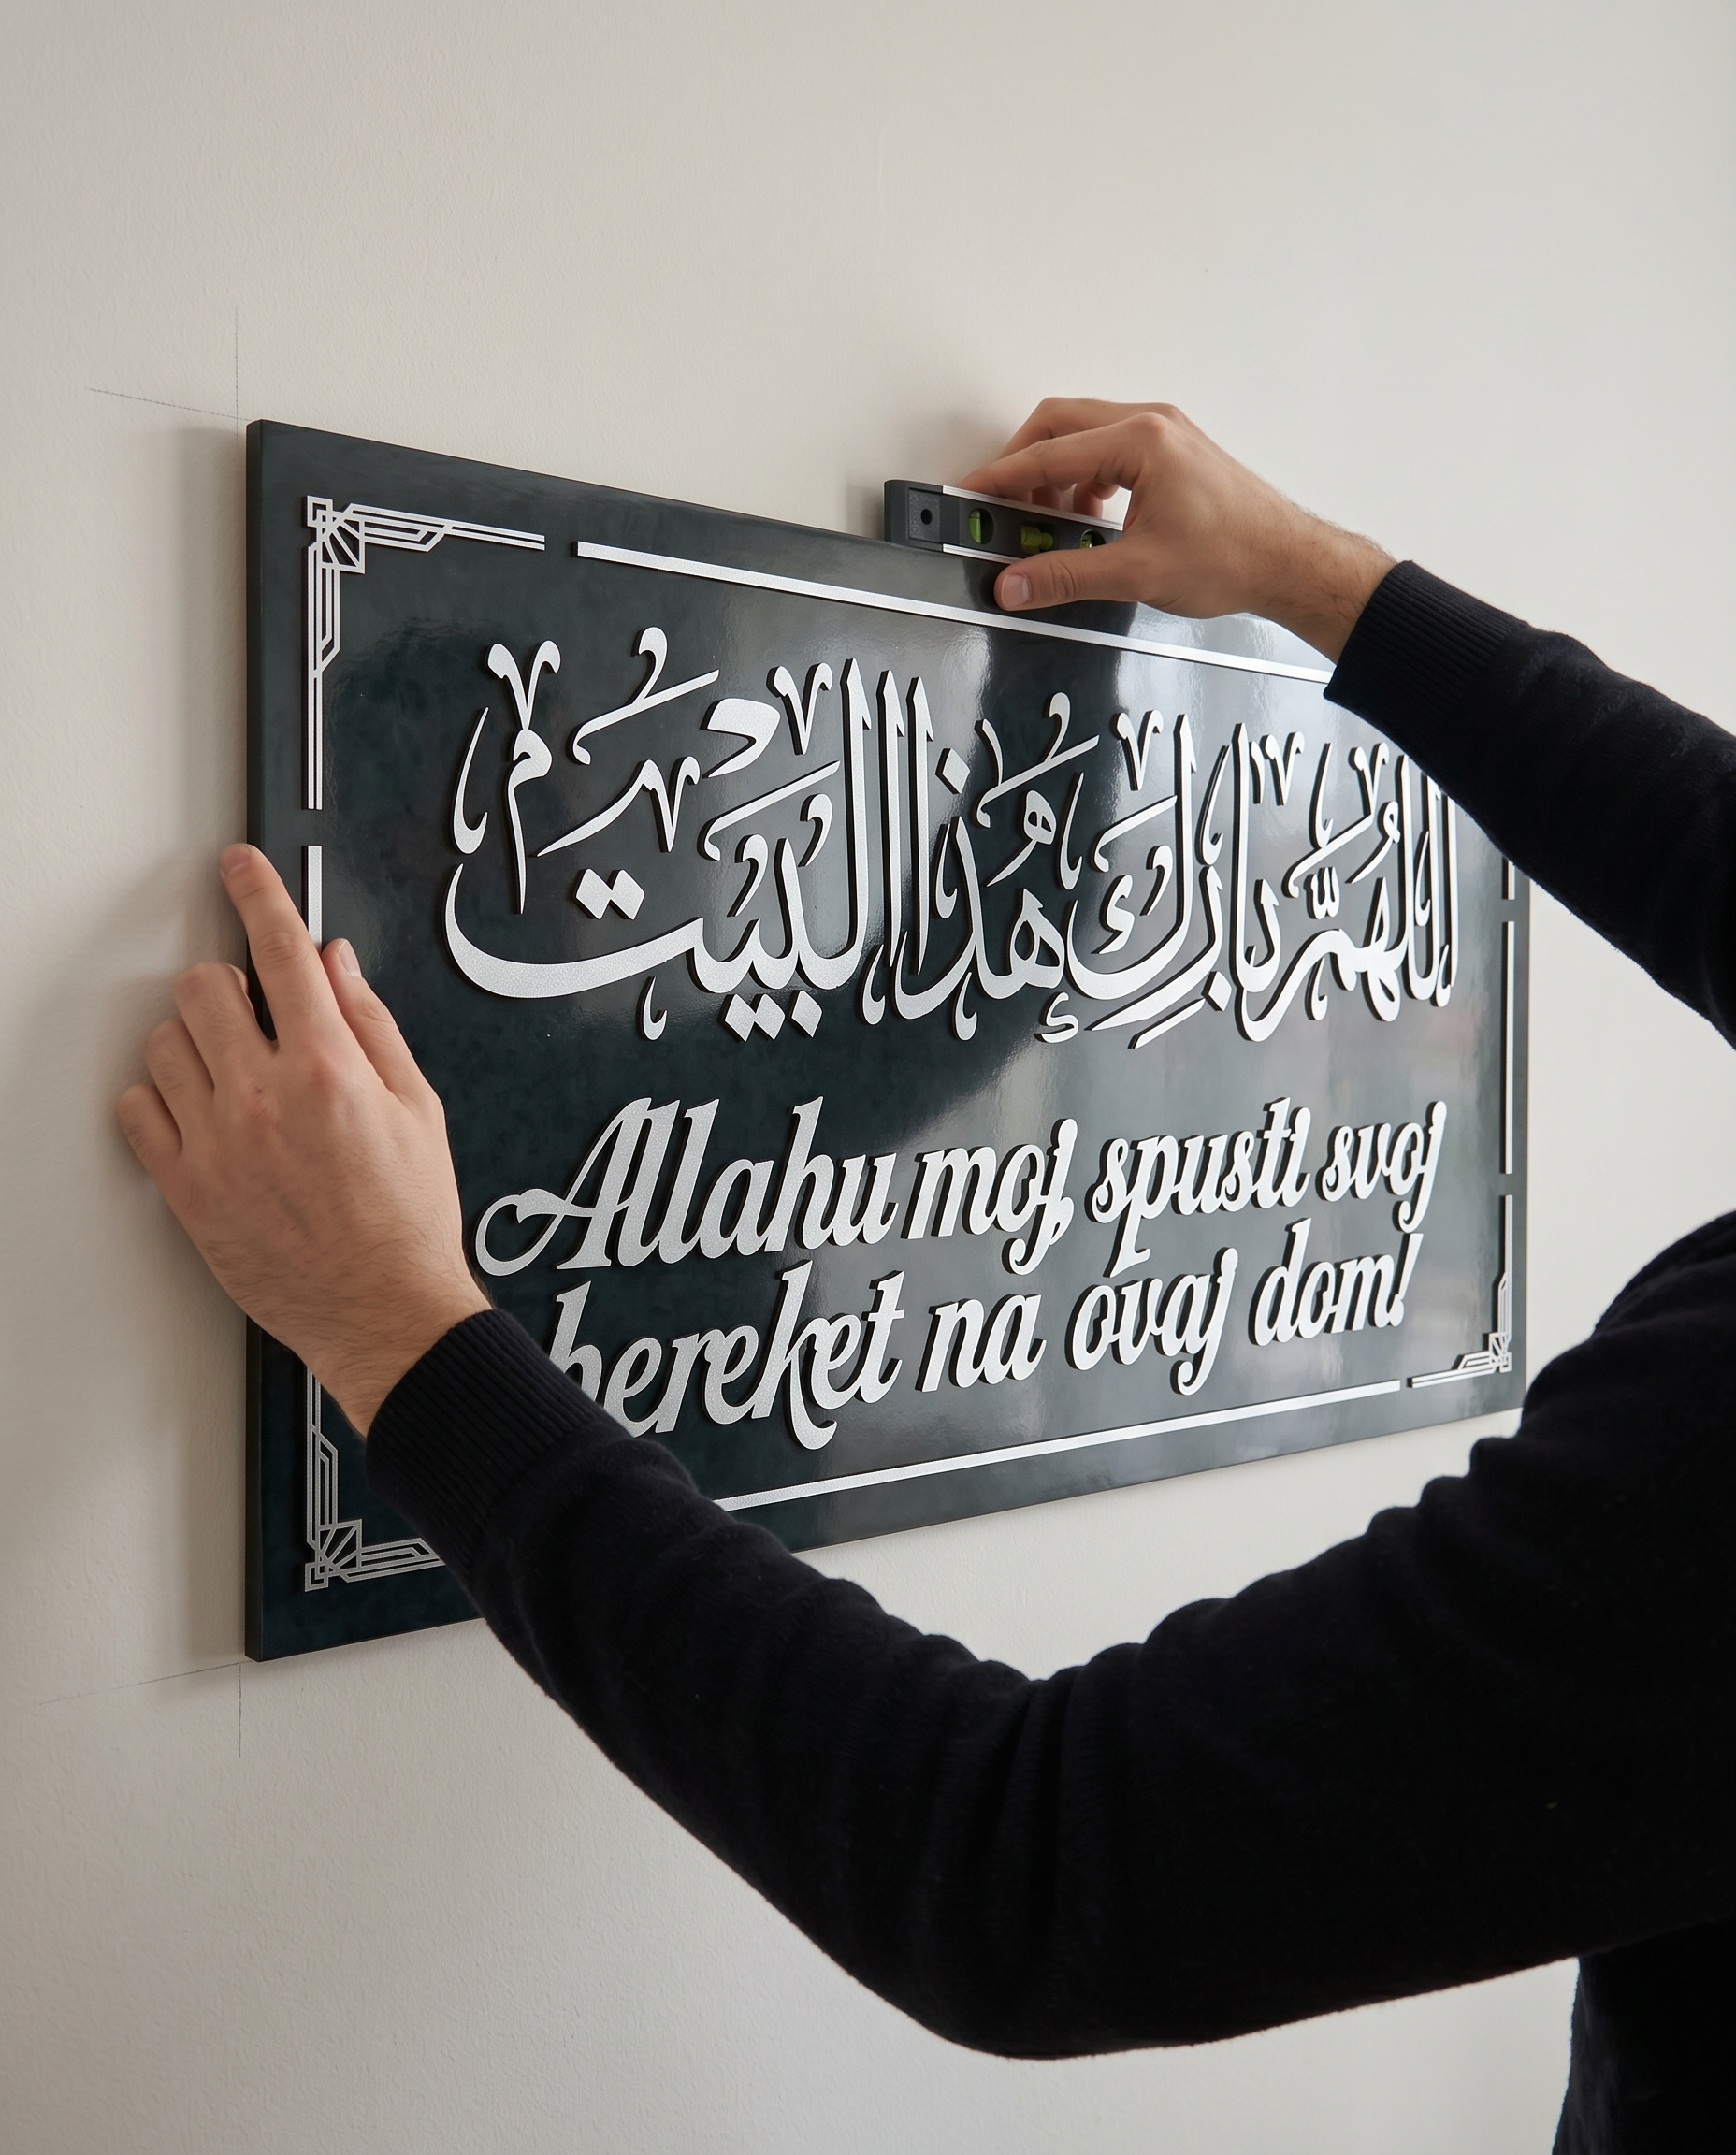 اللهم بارك هذا البيت
Allahu moj spusti svoj
bereket na ovaj dom!